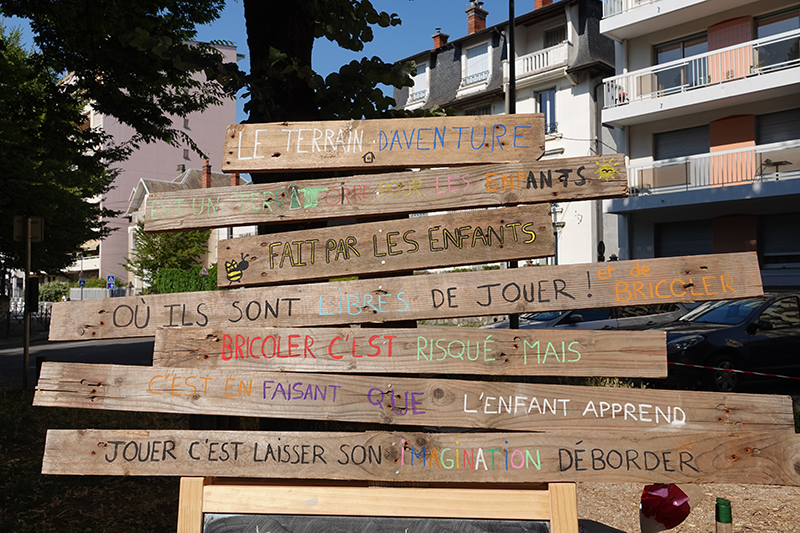 LE TERRAIN D'AVENTURE
EST UN TERRITOIRE PAR LES ENFANTS
FAIT PAR LES ENFANTS
OÙ ILS SONT LIBRES DE JOUER ! et de BRICOLER
BRICOLER C'EST RISQUÉ MAIS
C'EST EN FAISANT QUE L'ENFANT APPREND
JOUER C'EST LAISSER SON IMAGINATION DÉBORDER